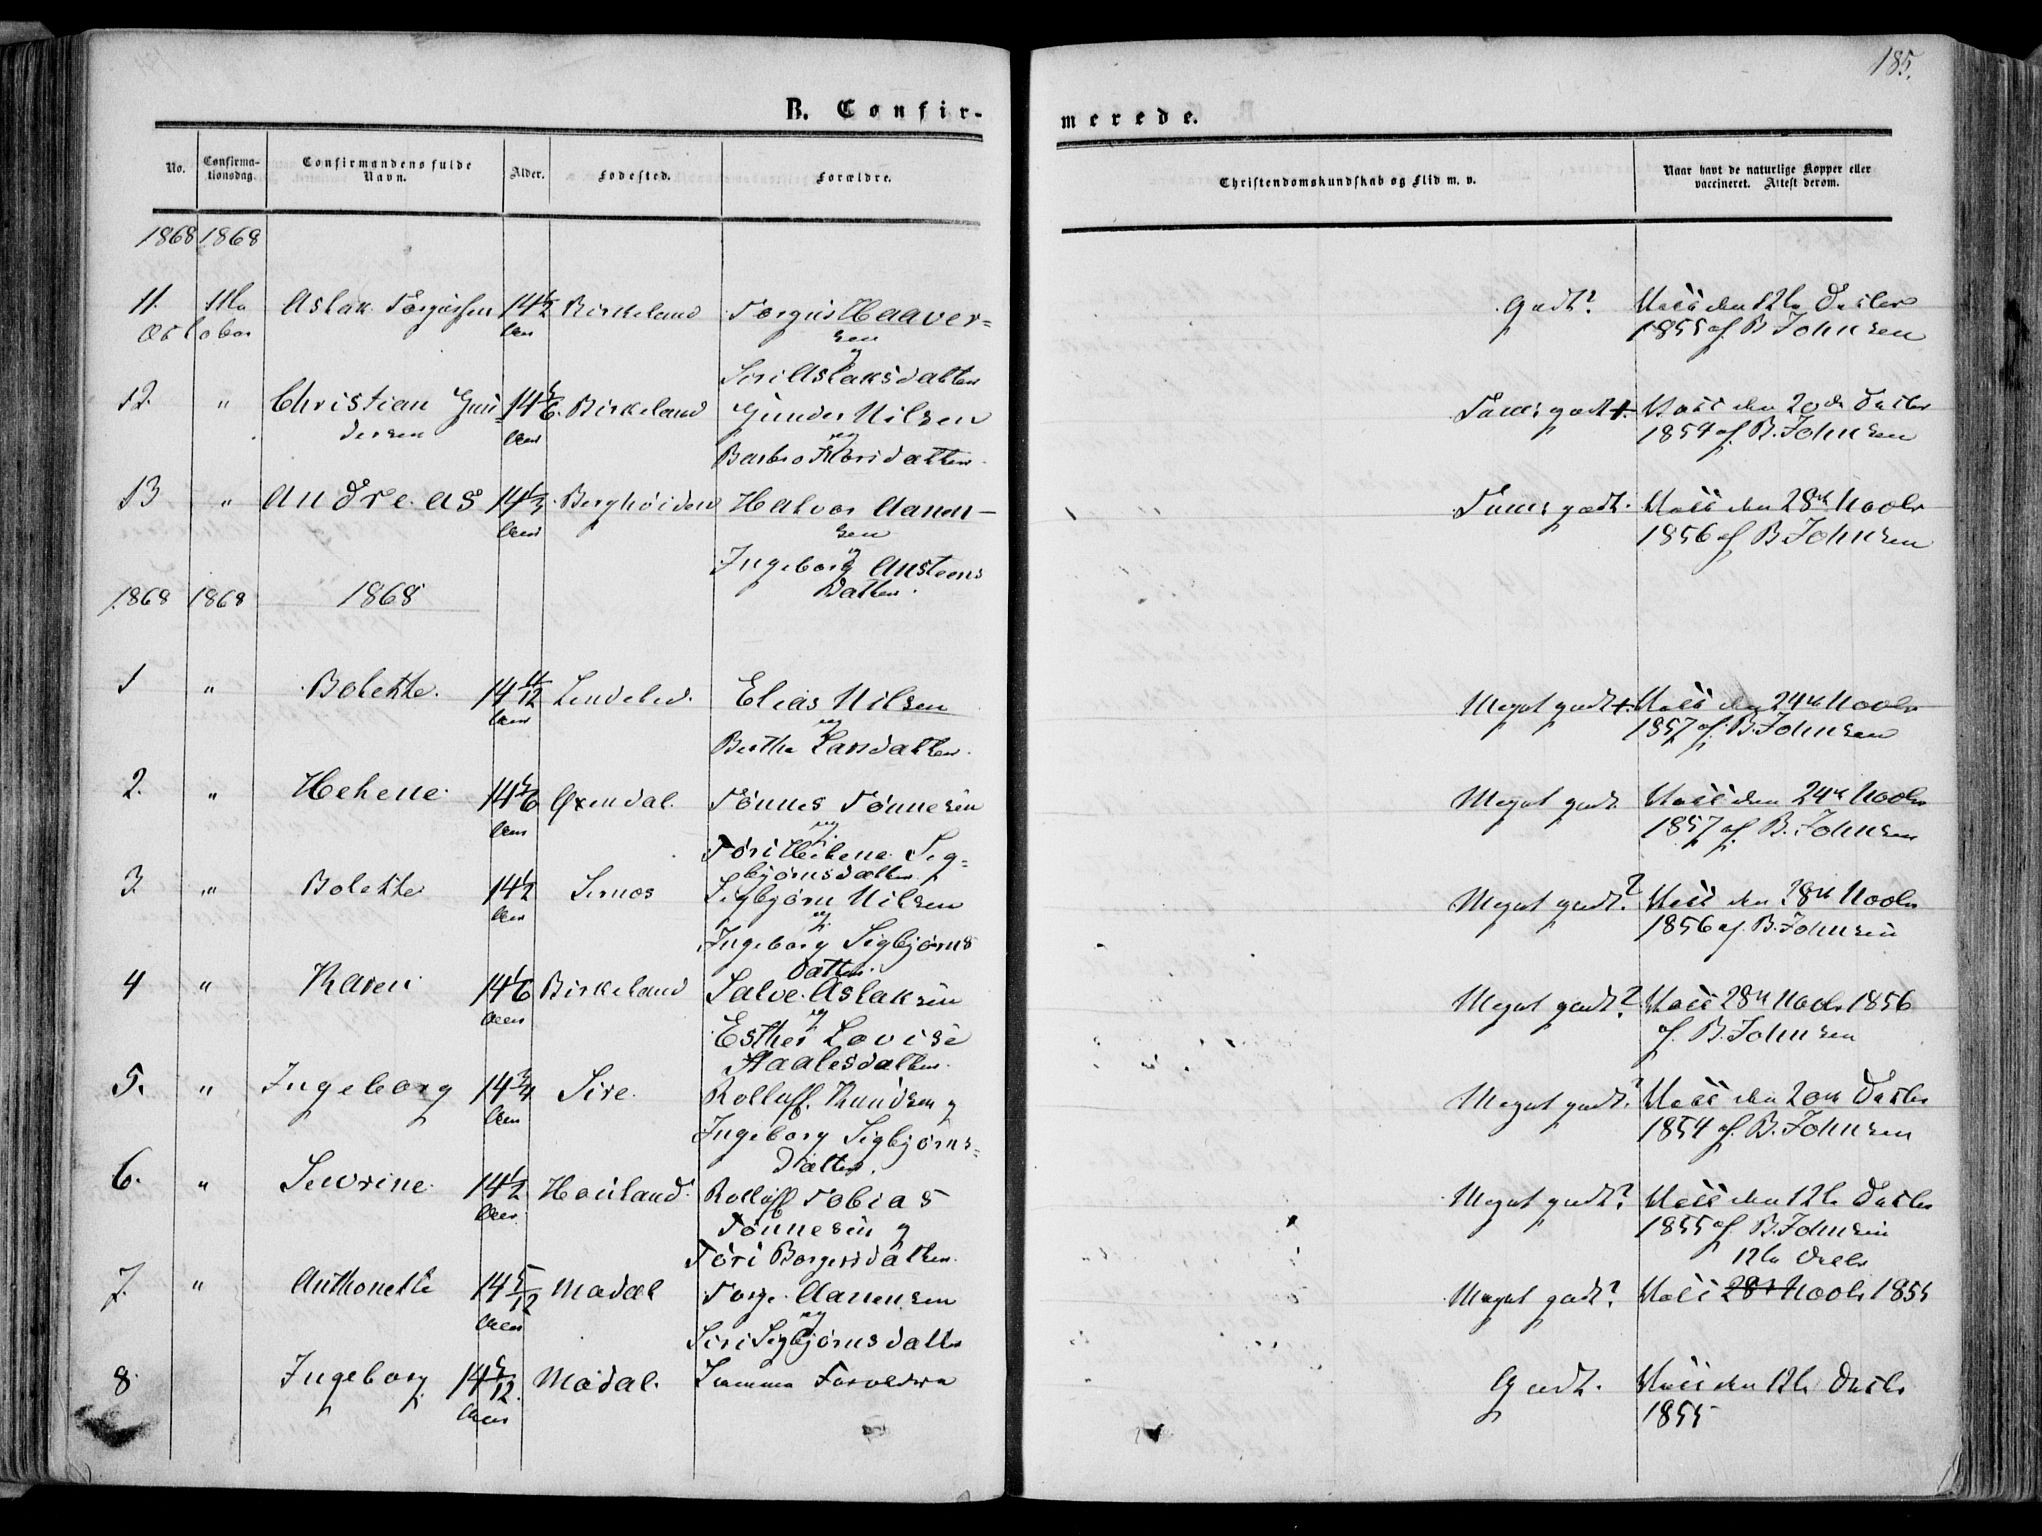 185.
B. Confir-
merede.
No.
Confirma-
tionsdag.
Confirmandens fulde
Navn.
Alder.
Fodested.
Forældre.
Christendomskundskab og Flid m. v.
Naar havt de naturlige Kopper eller
vaccineret. Attest derom.
1868 1868
11. 11te Aslak Torgussen 14 1/2 Birkeland Torgus Haaver= godt? Vacc den 12te Octbr
October Aar sen 1855 af B Johnsen
og
Siri Aslaksdatter
12. " Christian Gun 14 1/6 Birkeland Gunder Nilsen Tem: godt +. Vacc den 20de Octbr
dersen Aar og 1854 af B. Johnsen
Barbro datter
13 " Andreas 14 1/3 Berghöiden Halvor Aanen- Tem: godt. Vacc den 28de Novbr
Aar sen 1856 af B Johnsen
og
Ingeborg Austeens
Datter.
1868 1868 1868
1 " Bolette. 14 11/12 Lindeled. Elias Nilsen Meget godt +. Vacc den 24de Novbr
Aar og 1857 af B. Johnsen
Berthe Larsdatter.
2. " Helene. 14 5/6 Øxendal. Tönnes Tönnesen Meget godt Vacc den 24de Novbr
Aar og 1857 af B. Johnsen
Töri Helene Sig=
björnsdatter.
3. " Bolette 14 1/2 Sirnes Sigbjörn Nilsen Meget godt? Vacc den 28de Novbr
Aar og 1856 af B. Johnsen
Ingeborg Sigbjörns
datter.
4 " Karen 14 1/6 Birkeland Salve Aslaksen Meget godt? Vacc 28de Novbr 1856
Aar og af B. Johnsen
Esther Lovise
Staalesdatter.
5. " Ingeborg 14 3/4 Sire. Rolluff. Knudsen og Meget godt? Vacc den 20de Octbr
Aar Ingeborg Sigbjörns= 1854 af B. Johnsen
datter.
6. " Sevrine. 14 1/2 Houland. Rolluff Tobias Meget godt? Vacc den 12te Octbr
Aar. Tönnesen og 1855 af B. Johnsen
Töri Borgersdatter.
12te Octbr
7. " Anthonette 14 5/12 Modal Torge Aanensen Meget godt? Vacc 28de Novbr 1855
Aar og
Siri Sigbjörnsdatter
8. Ingeborg 14 5/12. Modal. Samme Forældre Godt. Vacc den 12te Octbr
Aar 1855